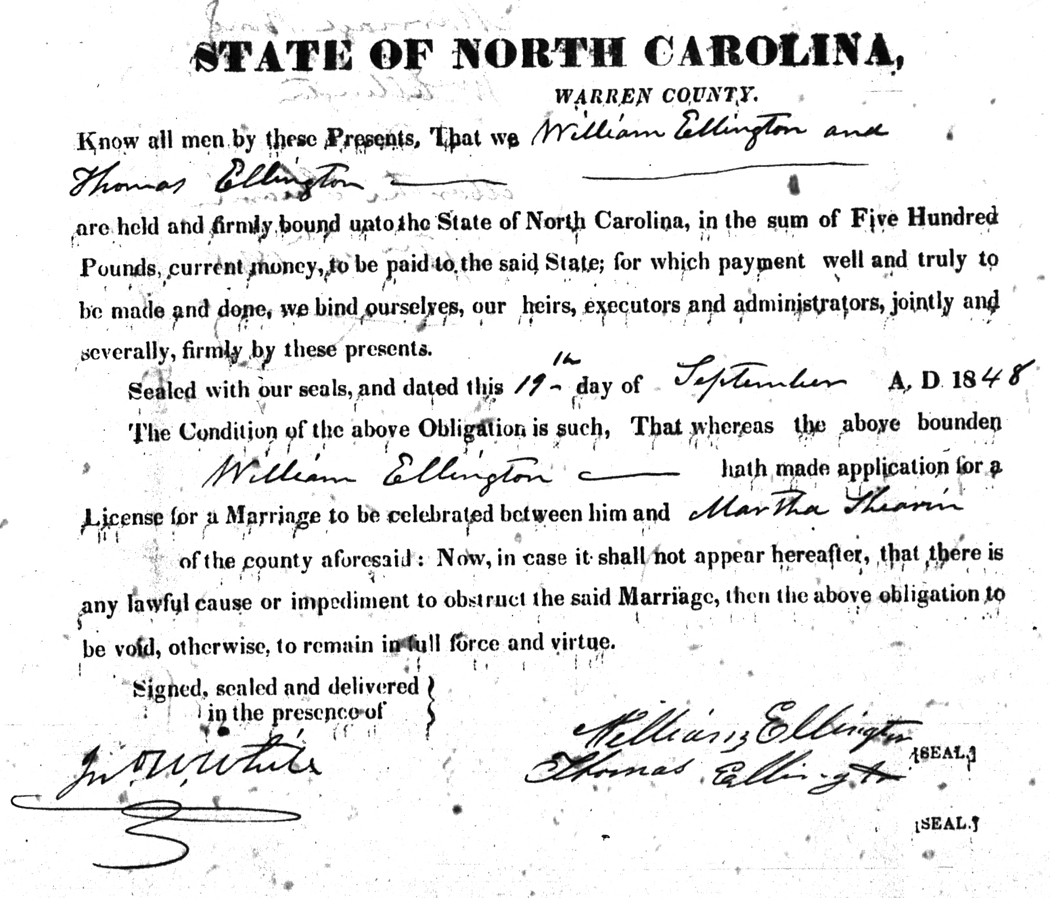 STATE OF NORTH CAROLINA,
WARREN COUNTY.
Know all men by these Presents, That we William Ellington and
Thomas Ellington
are held and firmly bound unto the State of North Carolina, in the sum of Five Hundred
Pounds, current money, to be paid to the said State; for which payment well and truly to
be made and done, we bind ourselves, our heirs, executors and administrators, jointly and
severally, firmly by these presents.
Sealed with our seals, and dated this 19th day of September A. D. 1848
The Condition of the above Obligation is such, That whereas the above bounden
William Ellington hath made application for a
License for a Marriage to be celebrated between him and Martha
of the county aforesaid: Now, in case it shall not appear hereafter, that there is
any lawful cause or impediment to obstruct the said Marriage, then the above obligation to
be void, otherwise, to remain in full force and virtue.
Signed, sealed and delivered }
in the presence of
William Ellington [SEAL.]
Jno W. White
Thomas Ellington
[SEAL.]